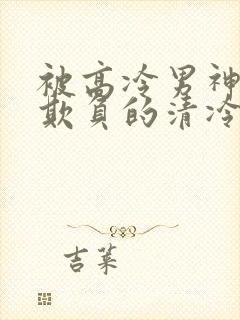 被高冷男神
欺负的清冷
吉莱